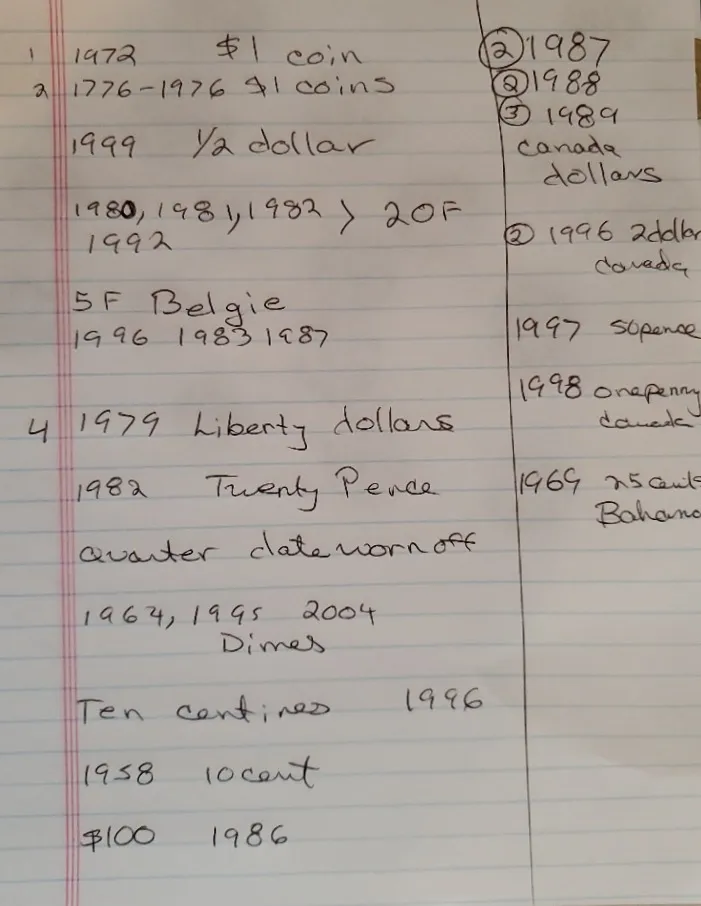 1 1972 $1 coin
2 1776-1976 $1 coins
1999 1/2 dollar
1980, 1981, 1982 > 20F
1992
5F Belgie
1996 1983 1987
4 1979 Liberty dollars
1982 Twenty Pence
Quarter date worn off
1964, 1995 2004
Dimes
Ten centines 1996
1958 10 cent
$100 1986
2 1987
2 1988
3 1989
Canada
dollars
2 1996 2 dollar
Canada
1997 50 pence
1998 one penny
Canada
1969 25 cents
Bahama